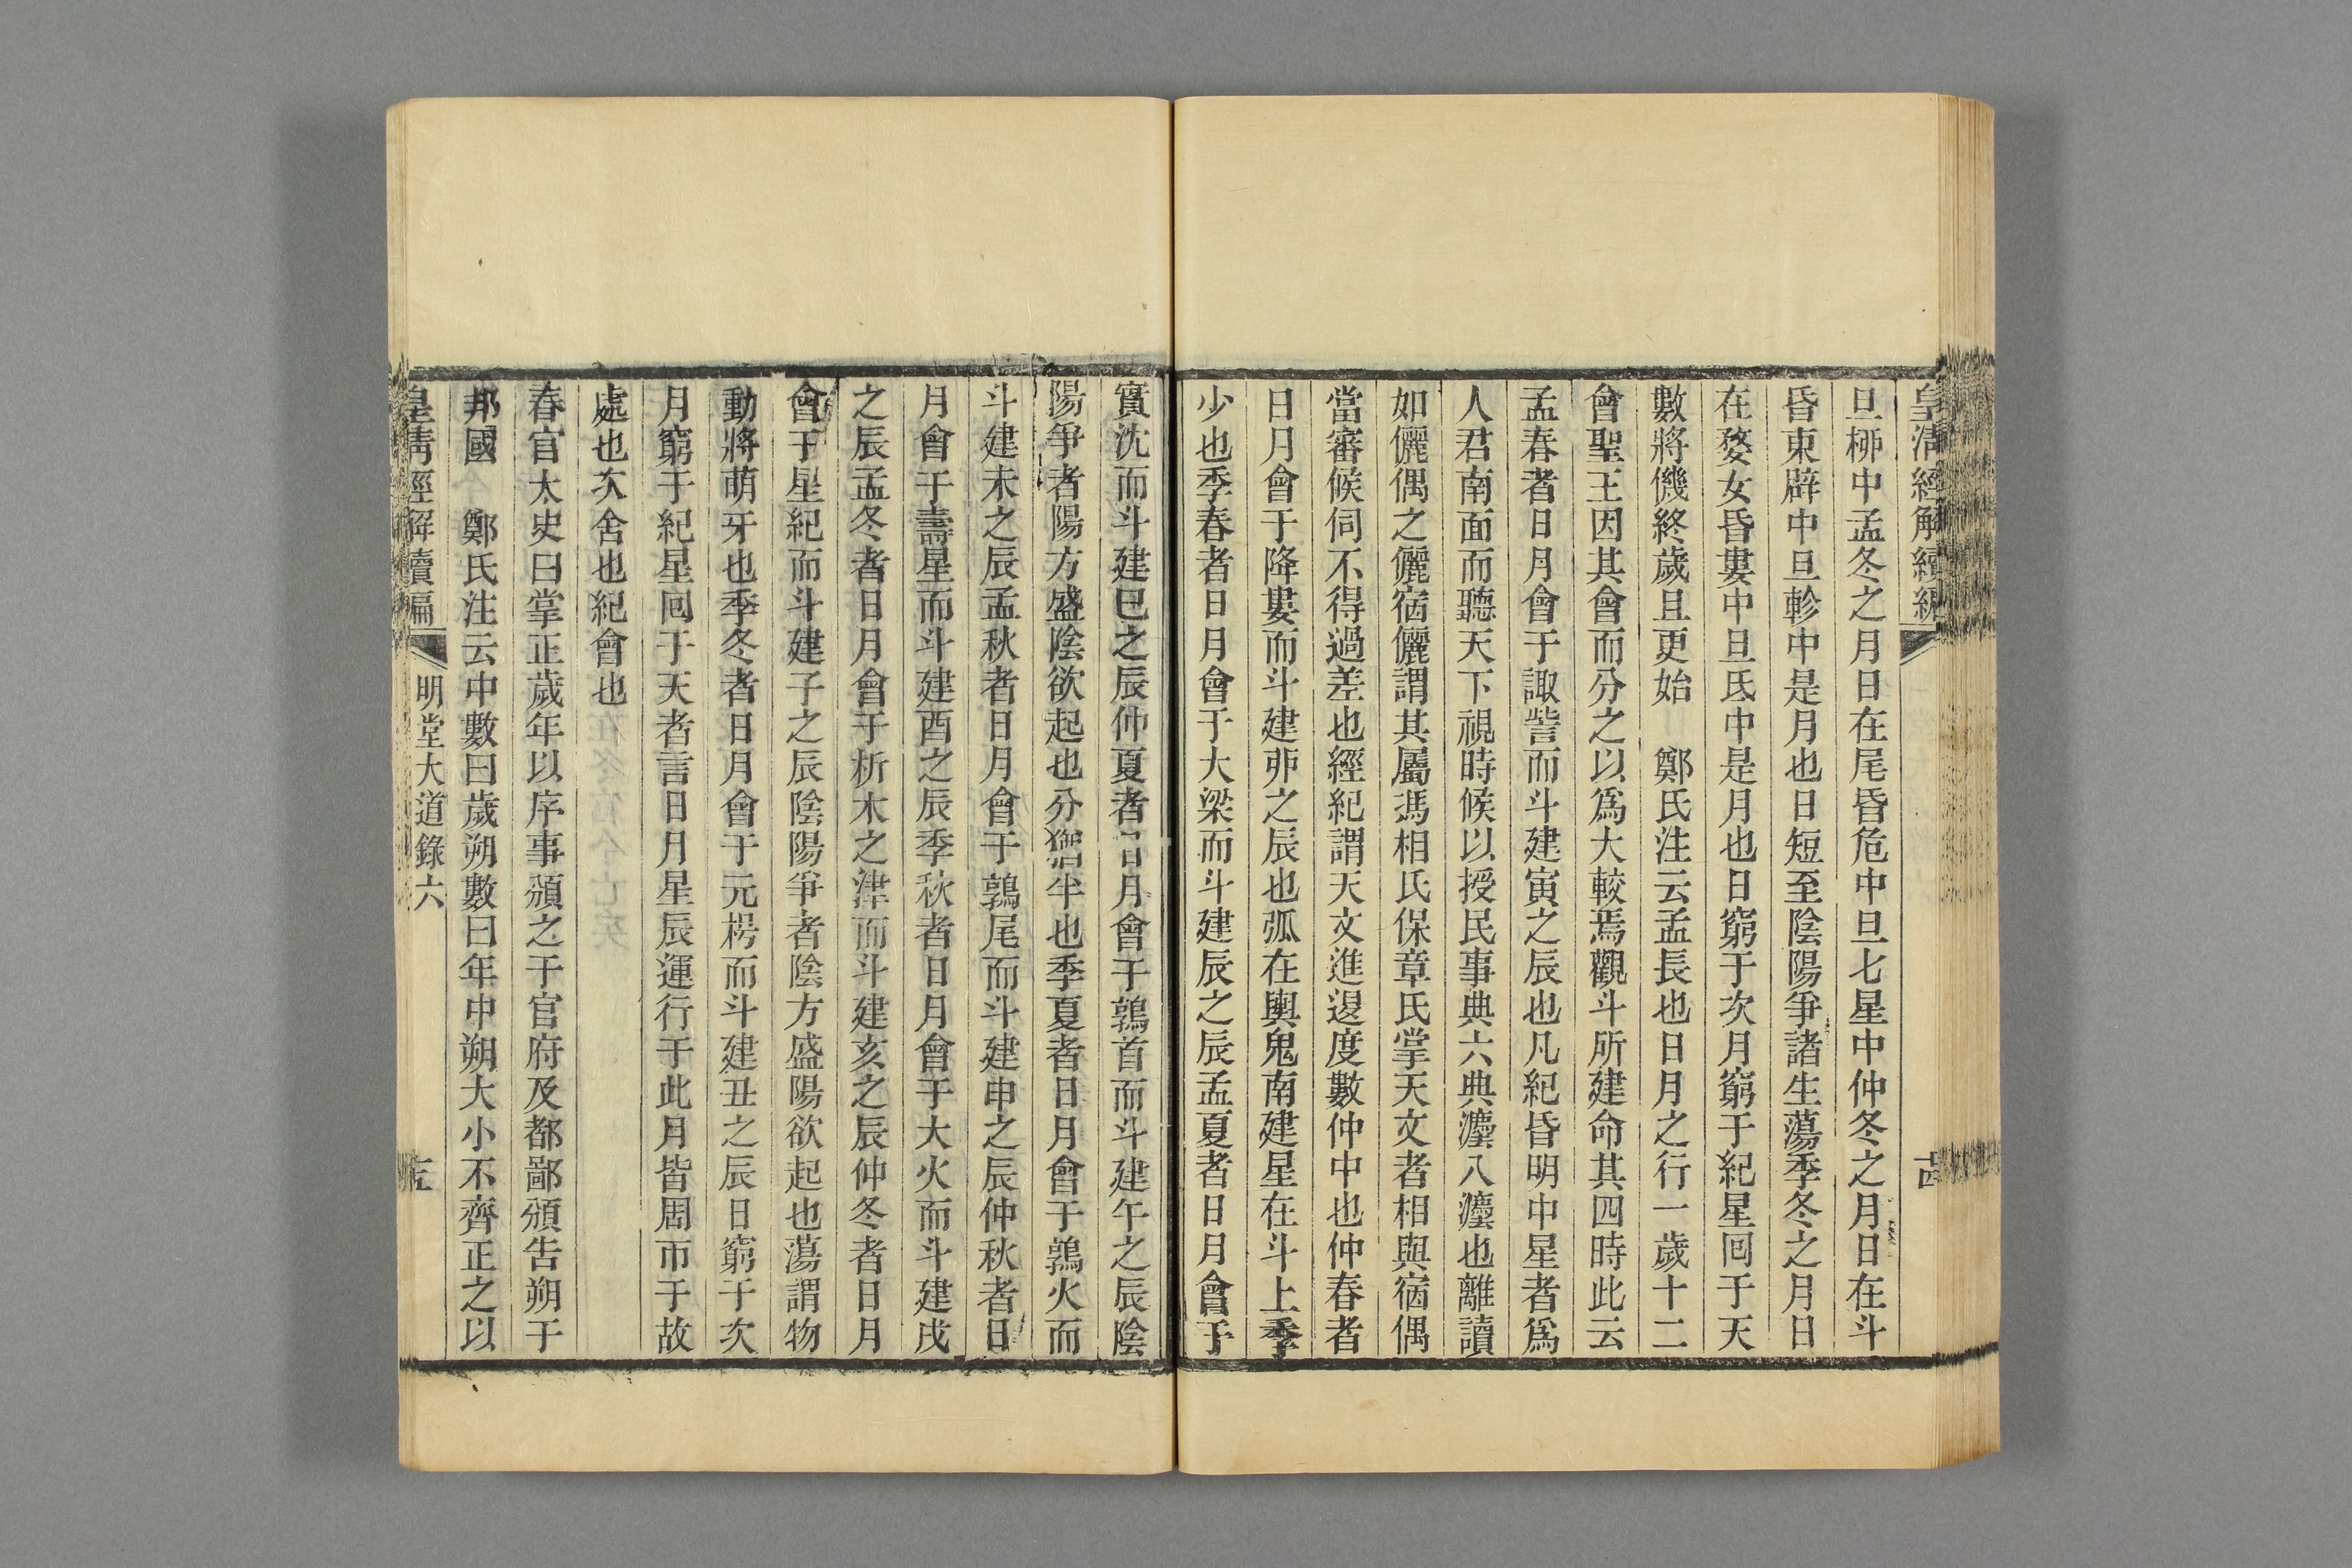 皇清經解續編
十四
旦桺中孟冬之月日在尾昏危中旦七星中仲冬之月日在斗
昏東辟中旦軫中是月也日短至陰陽爭諸生蕩季冬之月日
在婺女昏婁中旦氐中是月也日窮于次月窮于紀星回于天
數將僟終歲且更始　鄭氏注云孟長也日月之行一歲十二
會聖王因其會而分之以爲大較焉觀斗所建命其四時此云
孟春者日月會于諏訾而斗建寅之辰也凡紀昏明中星者爲
人君南面而聽天下視時候以授民事典六典灋八灋也離讀
如儷偶之儷宿儷謂其屬馮相氏保章氏掌天文者相與宿偶
當審候伺不得過差也經紀謂天文進退度數仲中也仲春者
日月會于降婁而斗建丣之辰也弧在輿鬼南建星在斗上季
少也季春者日月會于大梁而斗建辰之辰孟夏者日月會于
實沈而斗建巳之辰仲夏者日月會于鶉首而斗建午之辰陰
陽爭者陽方盛陰欲起也分猶半也季夏者日月會于鶉火而
斗建未之辰孟秋者日月會于鶉尾而斗建申之辰仲秋者日
月會于壽星而斗建酉之辰季秋者日月會于大火而斗建戌
之辰孟冬者日月會于析木之津而斗建亥之辰仲冬者日月
會于星紀而斗建子之辰陰陽爭者陰方盛陽欲起也蕩謂物
動將萌牙也季冬者日月會于元枵而斗建丑之辰日窮于次
月窮于紀星回于天者言日月星辰運行于此月皆周帀于故
處也次舍也紀會也
春官太史曰掌正歲年以序事頒之于官府及都鄙頒告朔于
邦國　鄭氏注云中數曰歲朔數曰年中朔大小不齊正之以
皇清經解續編
明堂大道錄六
十五